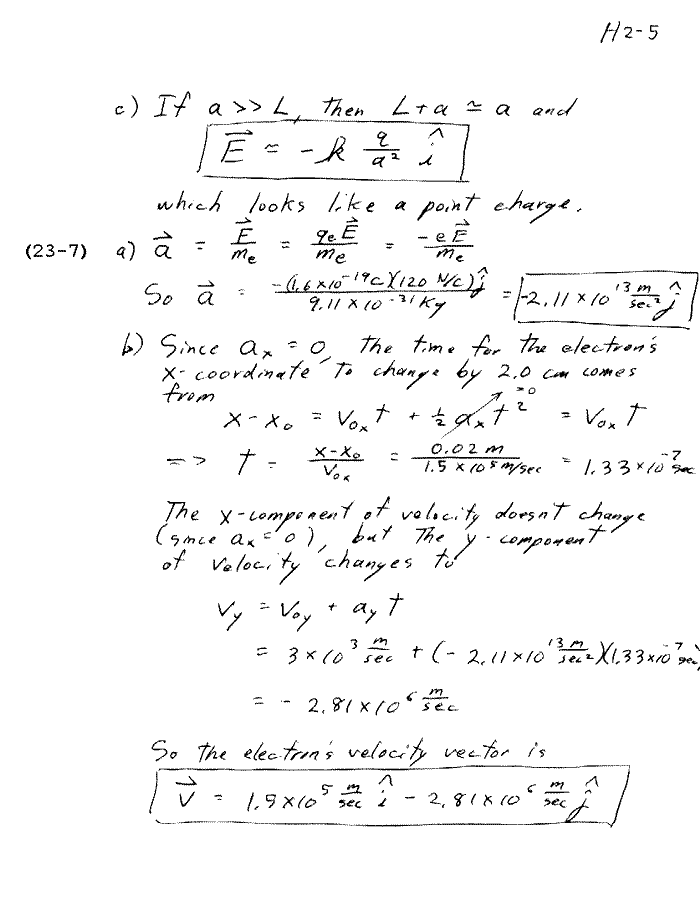 H2-5
c) If a >> L, then L+a ≃ a and
E⃗ ≃ -k q/a² î
which looks like a point charge.
(23-7) a) a⃗ = E⃗/mₑ = qₑE⃗/mₑ = -eE⃗/mₑ
So a⃗ = -(1.6×10⁻¹⁹C)(120 N/C)ĵ / 9.11×10⁻³¹Kg = -2.11×10¹³ m/sec² ĵ
b) Since aₓ = 0, the time for the electron's
x-coordinate to change by 2.0 cm comes
from
x-x₀ = V₀ₓt + ½aₓt² = V₀ₓt
=0
=> t = x-x₀/V₀ₓ = 0.02 m/1.5×10⁵m/sec = 1.33×10⁻⁷ sec
The x-component of velocity doesn't change
(since aₓ=0), but the y-component
of velocity changes to
Vy = V₀y + ayt
= 3×10³ m/sec + (-2.11×10¹³ m/sec²)(1.33×10⁻⁷ sec)
= -2.81×10⁶ m/sec
So the electron's velocity vector is
V⃗ = 1.5×10⁵ m/sec î - 2.81×10⁶ m/sec ĵ